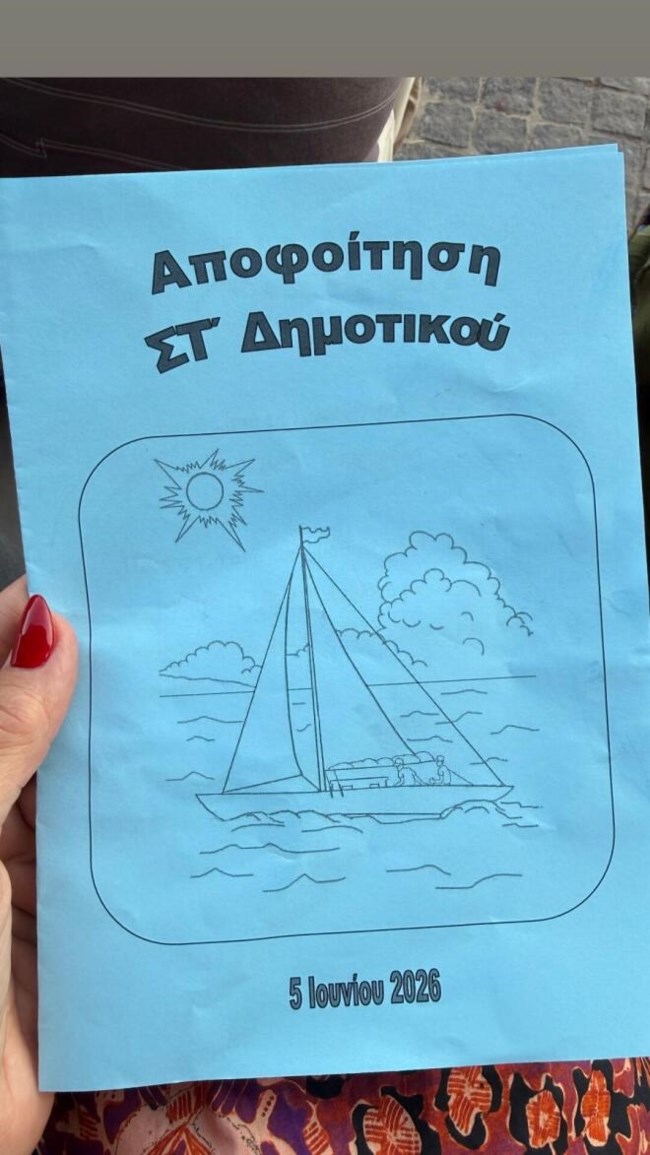 Αποφοίτηση
ΣΤ΄ Δημοτικού
5 Ιουνίου 2026